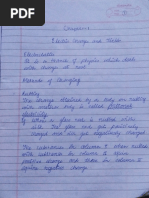 Chapter-1
Electric Charges and Fields
Electrostatics
It is a branch of physics which deals
with charge at rest.
Methods of Charging
Rubbing
The charge obtained by a body on rubbing
with another body is called frictional
electricity.
If a glass rod is rubbed with
silk, the glass rod got positively
charged and silk got negatively charged.
The substances in column 1 when rubbed
with substances in column 2 acquire
positive charge and those in column 2
acquire negative charge.